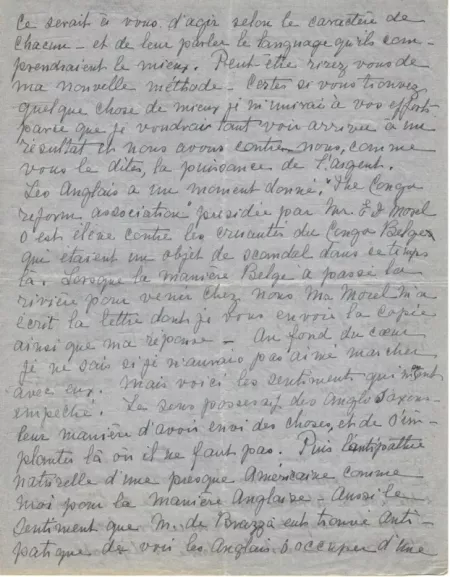 Ce serait à vous d'agir selon le caractère de
chacun - et de leur parler le language qu'ils com-
prendraient le mieux. Peut être rirez vous de
ma nouvelle méthode - Certes si vous trouvez
quelque chose de mieux je m'unirai à vos efforts
parce que je voudrais tant voir arriver à un
résultat et nous avons contre nous, comme
vous le dites, la puissance de l'argent.
Les Anglais a un moment donné, "The Congo
reform association" présidée par Mr. E D Morel
s'est élevé contre les cruautés du Congo Belge
que étaient un objet de scandal dans ce temps
là. Lorsque la manière Belge a passé la
rivière pour venir chez nous Mr Morel m'a
écrit la lettre dont je vous envoie la copie
ainsi que ma réponse - Au fond du cœur
je ne sais si je n'aurais pas aimé marcher
avec eux. Mais voici les sentiments qui m'ont
empêché. Le sens possessif des Anglo Saxons -
leur manière d'avoir envi des choses, et de s'im-
planter là où il ne faut pas. Puis l'antipathie
naturelle d'une presque Américaine comme
moi pour la manière Anglaise - Aussi le
sentiment que M. de Brazza eut trouvé anti-
patique de voir les Anglais s'occuper d'une